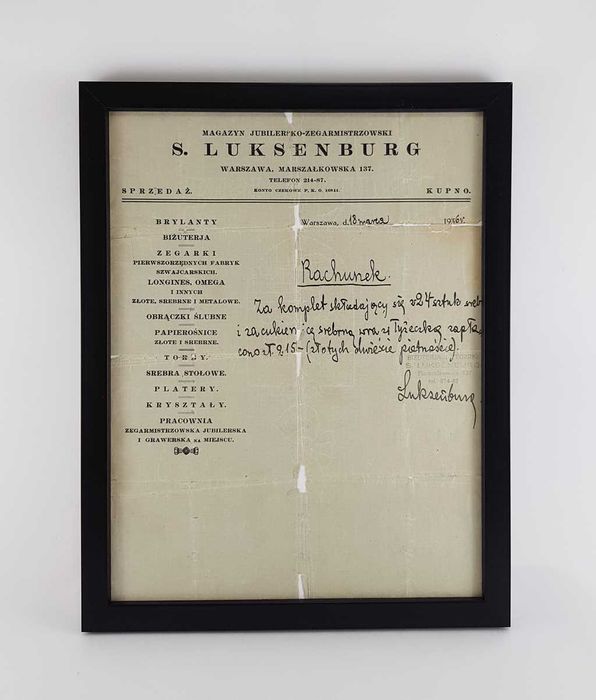 MAGAZYN JUBILERSKO-ZEGARMISTRZOWSKI
S. LUKSENBURG
WARSZAWA, MARSZAŁKOWSKA 137.
TELEFON 214-87.
SPRZEDAŻ. KONTO CZEKOWE P. K. O. KUPNO.
BRYLANTY
BIŻUTERJA
ZEGARKI
PIERWSZORZĘDNYCH FABRYK
SZWAJCARSKICH.
LONGINES, OMEGA
I INNYCH
ZŁOTE, SREBRNE I METALOWE.
OBRĄCZKI ŚLUBNE
PAPIEROŚNICE
ZŁOTE I SREBRNE.
TORBY.
SREBRA STOŁOWE.
PLATERY.
KRYSZTAŁY.
PRACOWNIA
ZEGARMISTRZOWSKA JUBILERSKA
I GRAWERSKA NA MIEJSCU.
Warszawa, d. 18 marca 1936 r.
Rachunek.
Za komplet składający się z 24 sztuk sreb
i za cukiernicę srebrną wraz z łyżeczką zapła-
cono zł. 215- (złotych dwieście piętnaście).
Luksenburg